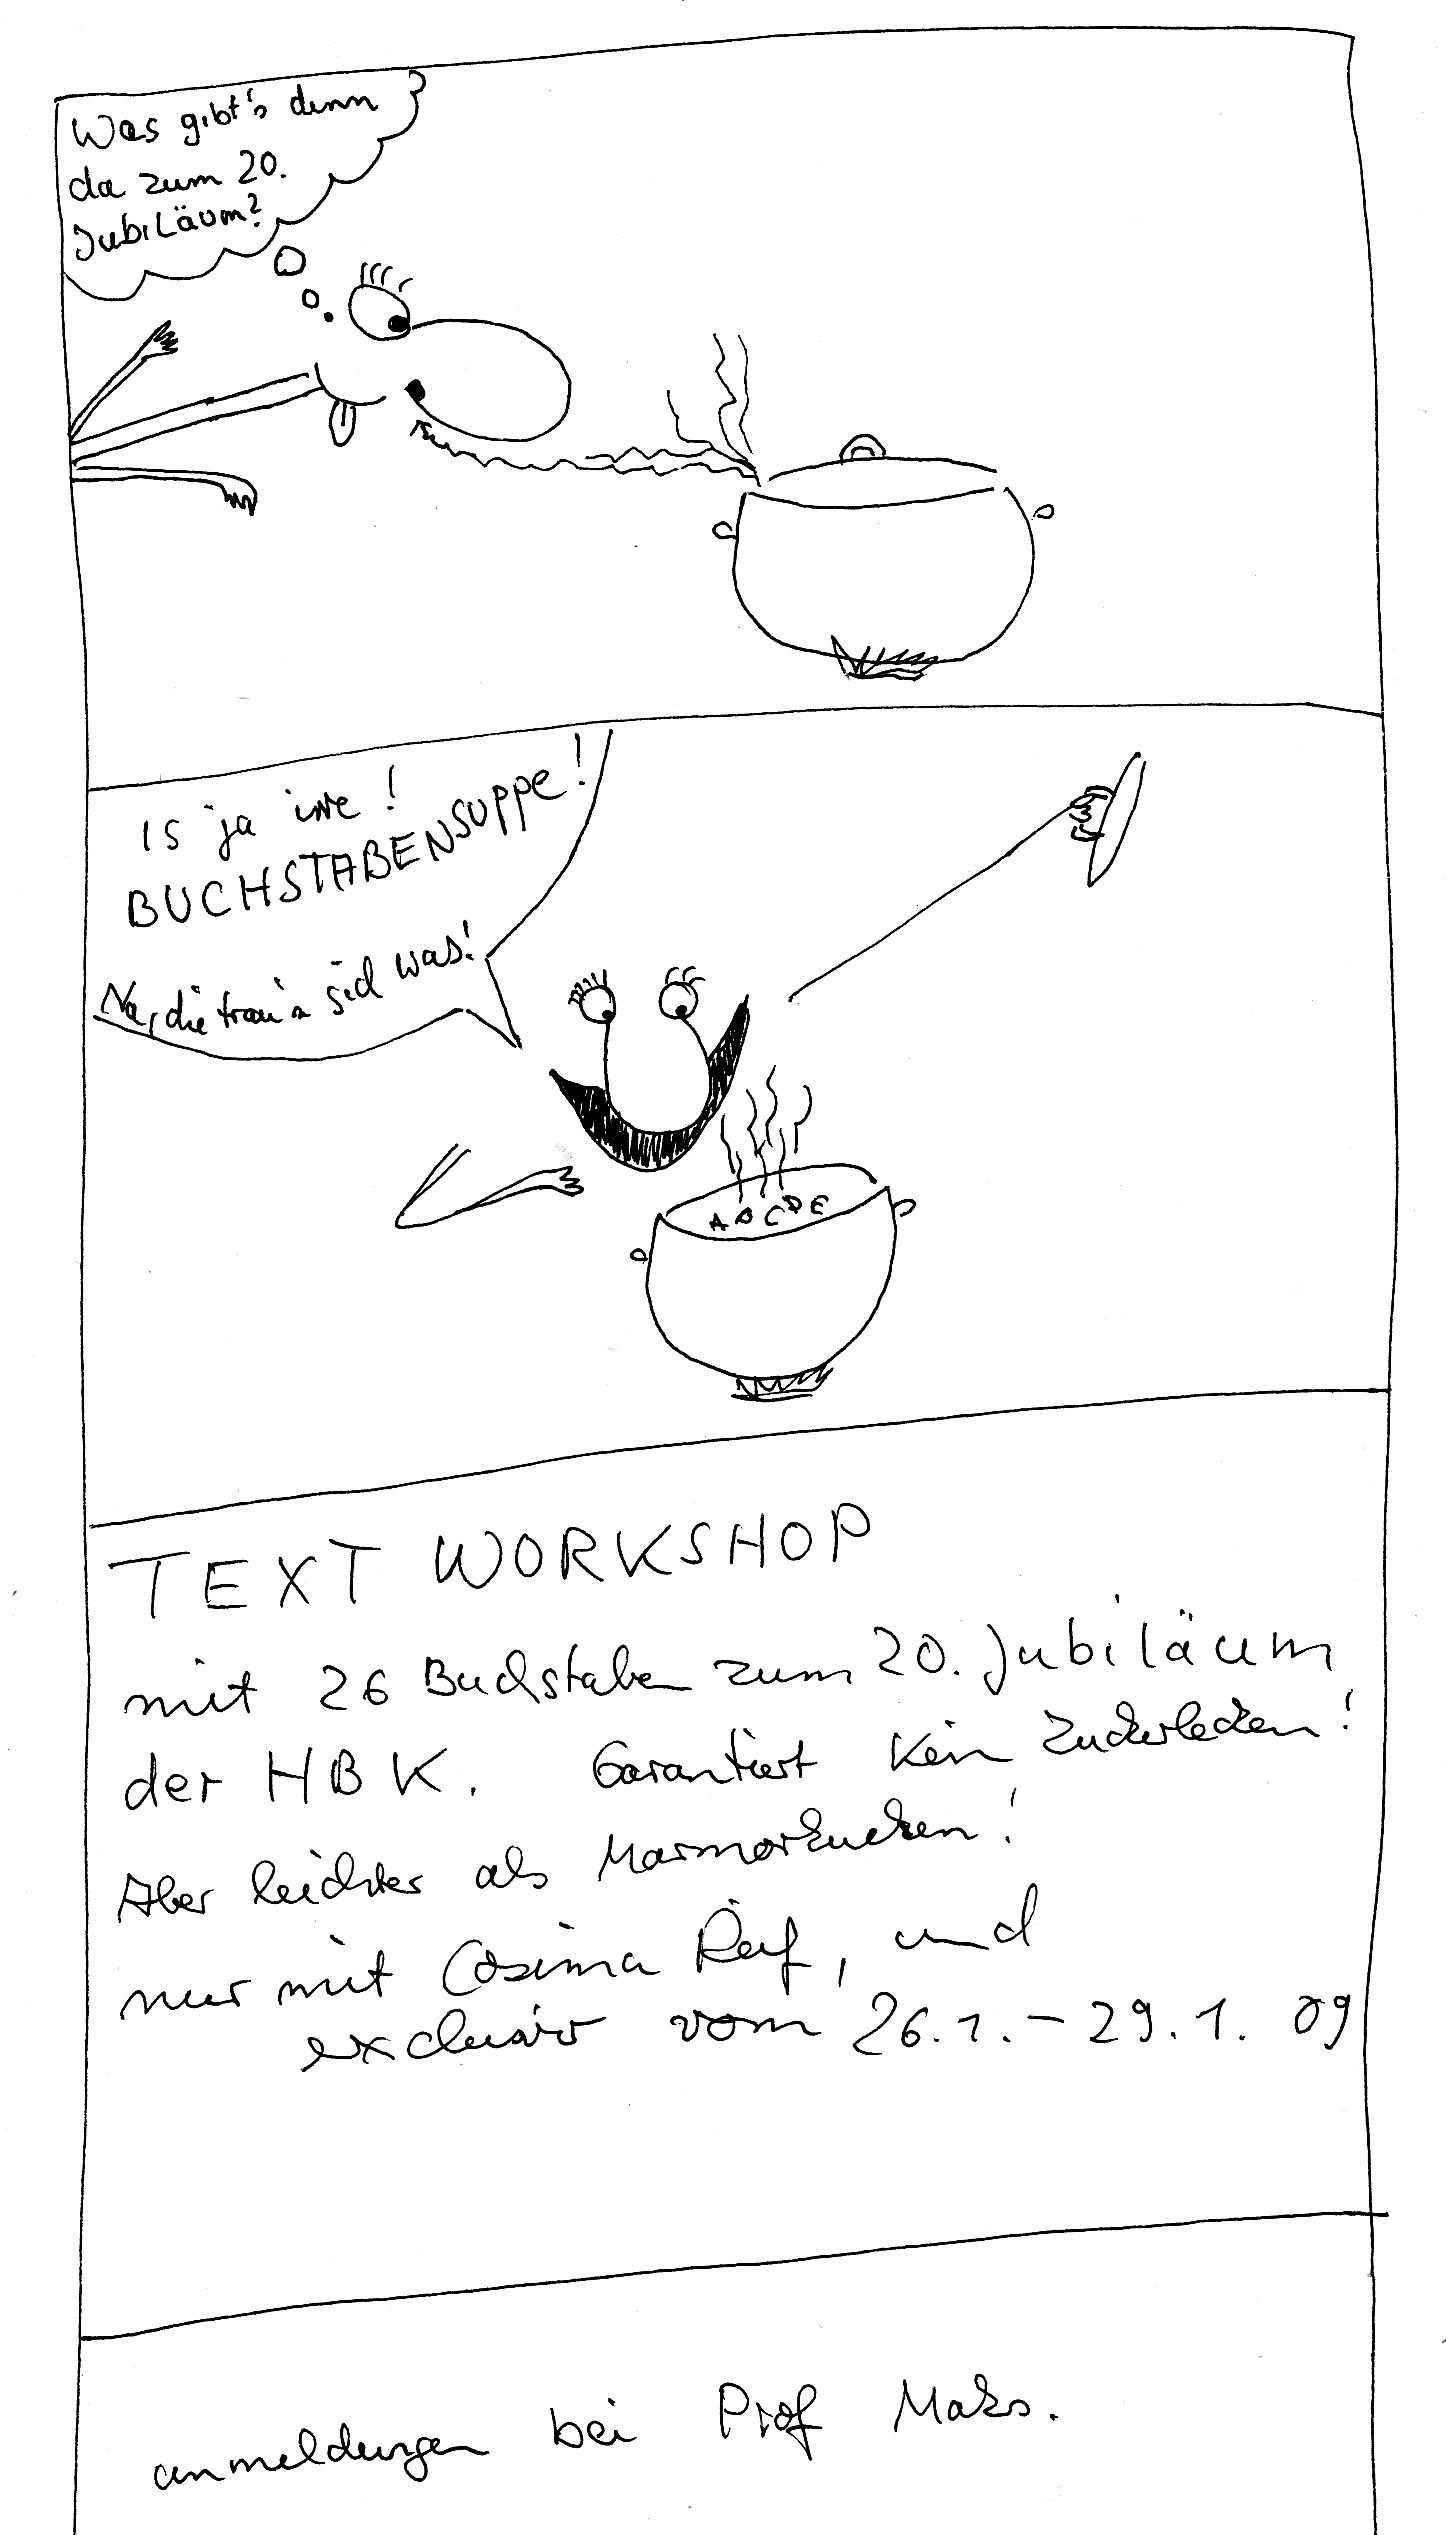 Was gibt's denn
da zum 20.
Jubiläum?
Is ja irre!
BUCHSTABENSUPPE!
Na, die trau'n sich was!
A B C D E
TEXT WORKSHOP
mit 26 Buchstaben zum 20. Jubiläum
der HBK. Garantiert kein Zuckerlecken!
Aber leichter als Marmorkuchen!
nur mit Cosima, und
exclusiv vom 26.1.-29.1. 09
anmeldungen bei Prof Maks.